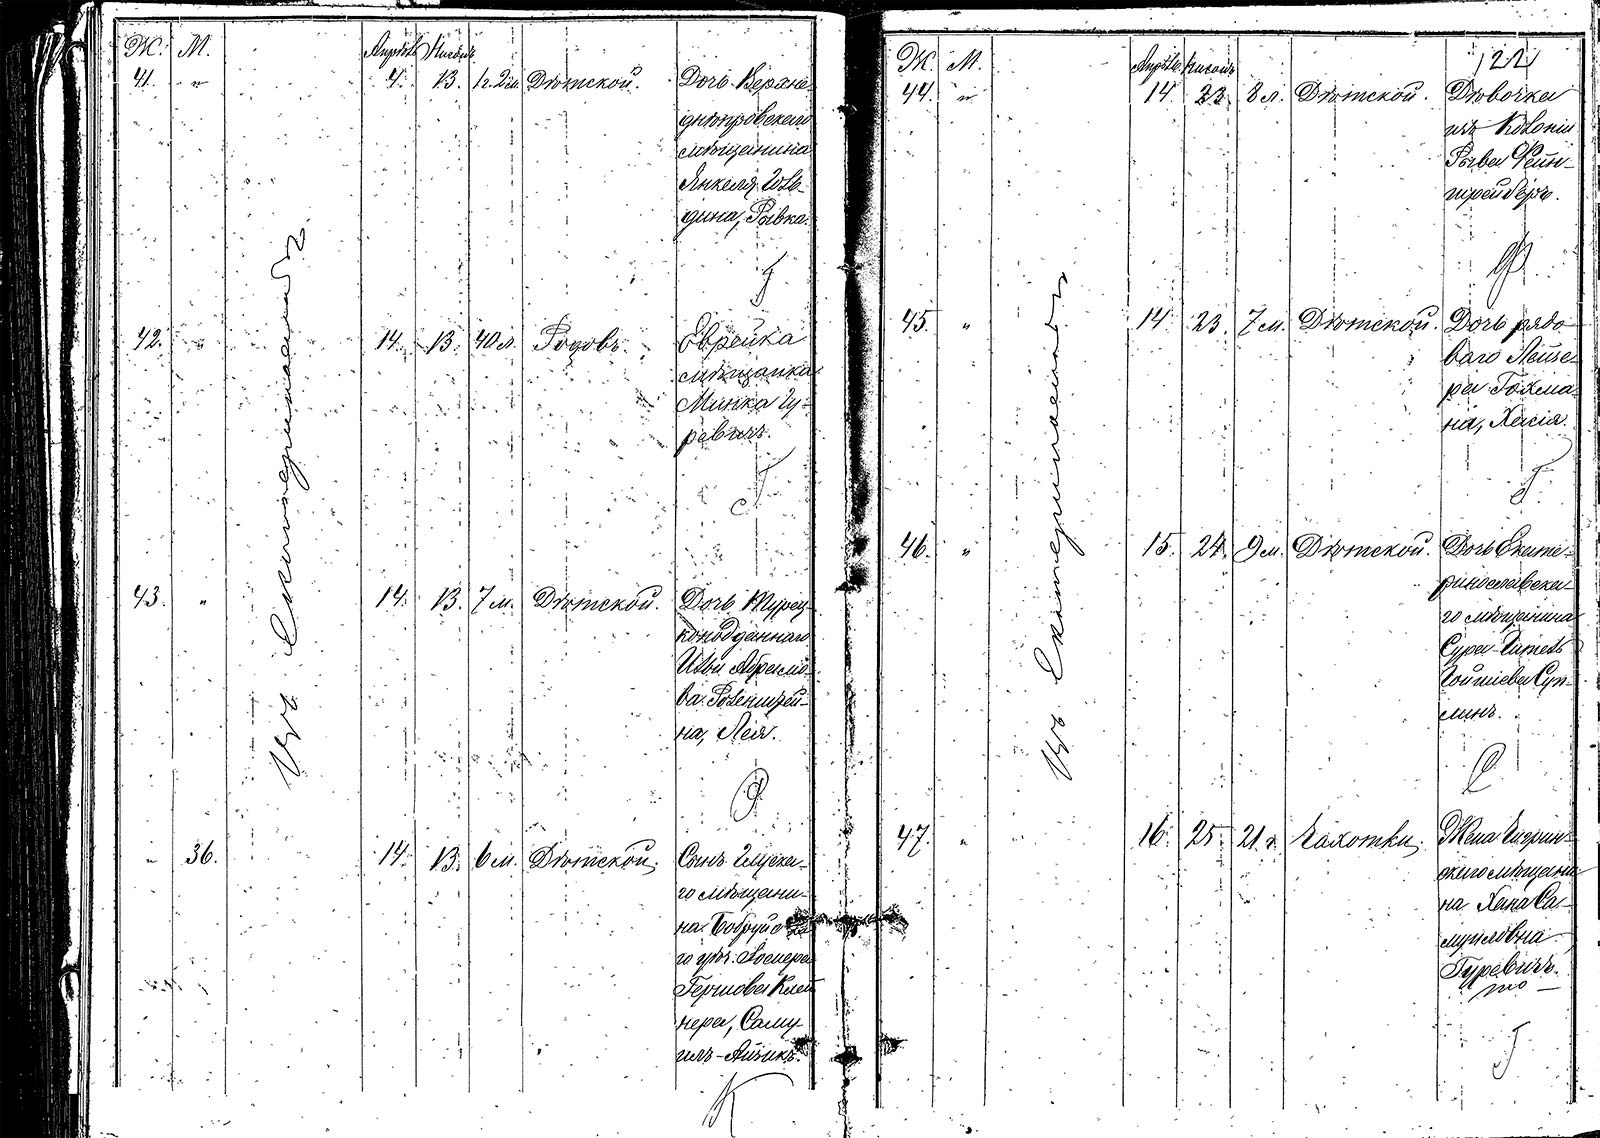 Ж. М. Апрѣль Нисонъ
41. „ 4. 13. 1г. 2м. Дѣтской. Дочь Верхне-
днѣпровскаго
мѣщанина
Янкеля
дина, Рывка.
42. „ 14. 13. 40 л. Родовъ. Еврейка
мѣщанка
Минка Гу-
ревичъ.
43. „ 14. 13. 7 м. Дѣтской. Дочь Турец-
коподданнаго
Абрамо-
ва Розенштей-
на, Лея.
„ 36. 14. 13. 6 м. Дѣтской. Сынъ Глуска-
го мѣщани-
на Бобруйска-
го уѣз.
Гершова Клей-
нера, Саму-
илъ-Айзикъ.
К
Въ Екатеринославѣ
122
Ж. М. Апрѣль Нисонъ
44. „ 14 23. 8 л. Дѣтской. Дѣвочка
изъ Колоніи
Рыва Фейн-
Ф
45. „ 14 23. 7 м. Дѣтской. Дочь рядо-
ваго Лейзе-
ра Гохма-
на, Хася.
Г
46. „ 15. 24. 9 м. Дѣтской. Дочь Екате-
ринославска-
го мѣщанина
Сура
С
47. „ 16. 25. 21 г. Чахотки. Жена
скаго мѣщани-
на Хана Са-
муиловна
Гуревичъ.
Г
Въ Екатеринославѣ